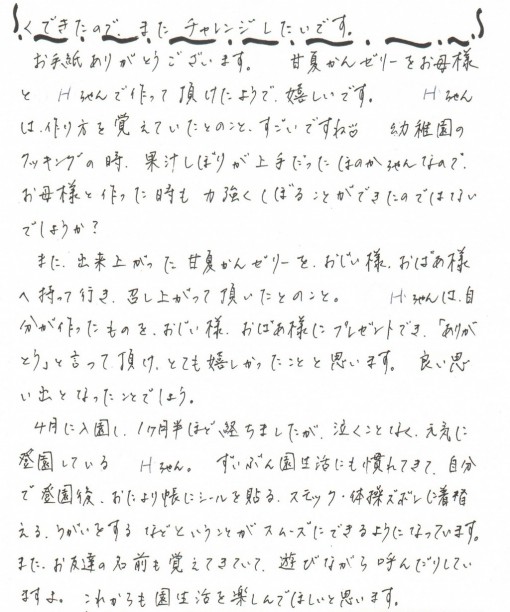 くできたので、またチャレンジしたいです。
お手紙ありがとうございます。 甘夏かんゼリーをお母様
と Hちゃんで作って頂けたようで、嬉しいです。 Hちゃん
は、作り方を覚えていたとのこと、すごいですね 幼稚園の
クッキングの時、果汁しぼりが上手だった ほのかちゃんなので、
お母様と作った時も力強くしぼることができたのではない
でしょうか?
また、出来上がった甘夏かんゼリーを、おじい様、おばあ様
へ持って行き、召し上がって頂いたとのこと。 Hちゃんは、自
分が作ったものを、おじい様、おばあ様にプレゼントでき、「ありが
とう」と言って頂け、とても嬉しかったことと思います。 良い思
い出となったことでしょう。
4月に入園し、1ヶ月半ほど経ちましたが、泣くことなく、元気に
登園している Hちゃん。 ずいぶん園生活にも慣れてきて、自分
で登園後、おたより帳にシールを貼る、スモック・体操ズボンに着替
える、うがいをするなどということがスムーズにできるようになっています。
また、お友達の名前も覚えてきていて、遊びながら呼んだりしてい
ますよ。これからも園生活を楽しんでほしいと思います。